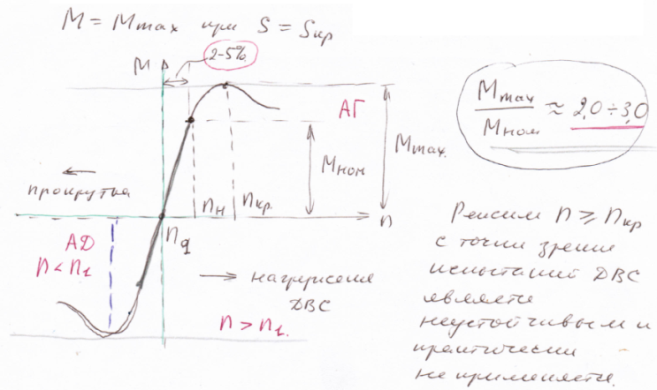 M = Mmax при S = Sкр
2-5%
M
АГ
Mmax
Mном
≈ 2,0 ÷ 3,0
Mном
Mmax.
прокрутка
nн
nкр.
n
АД
n1
n < n1
нагружения
ДВС
n > n1.
Режим n ⩾ nкр
с точки зрения
испытаний ДВС
является
неустойчивым и
практически
не применяется.